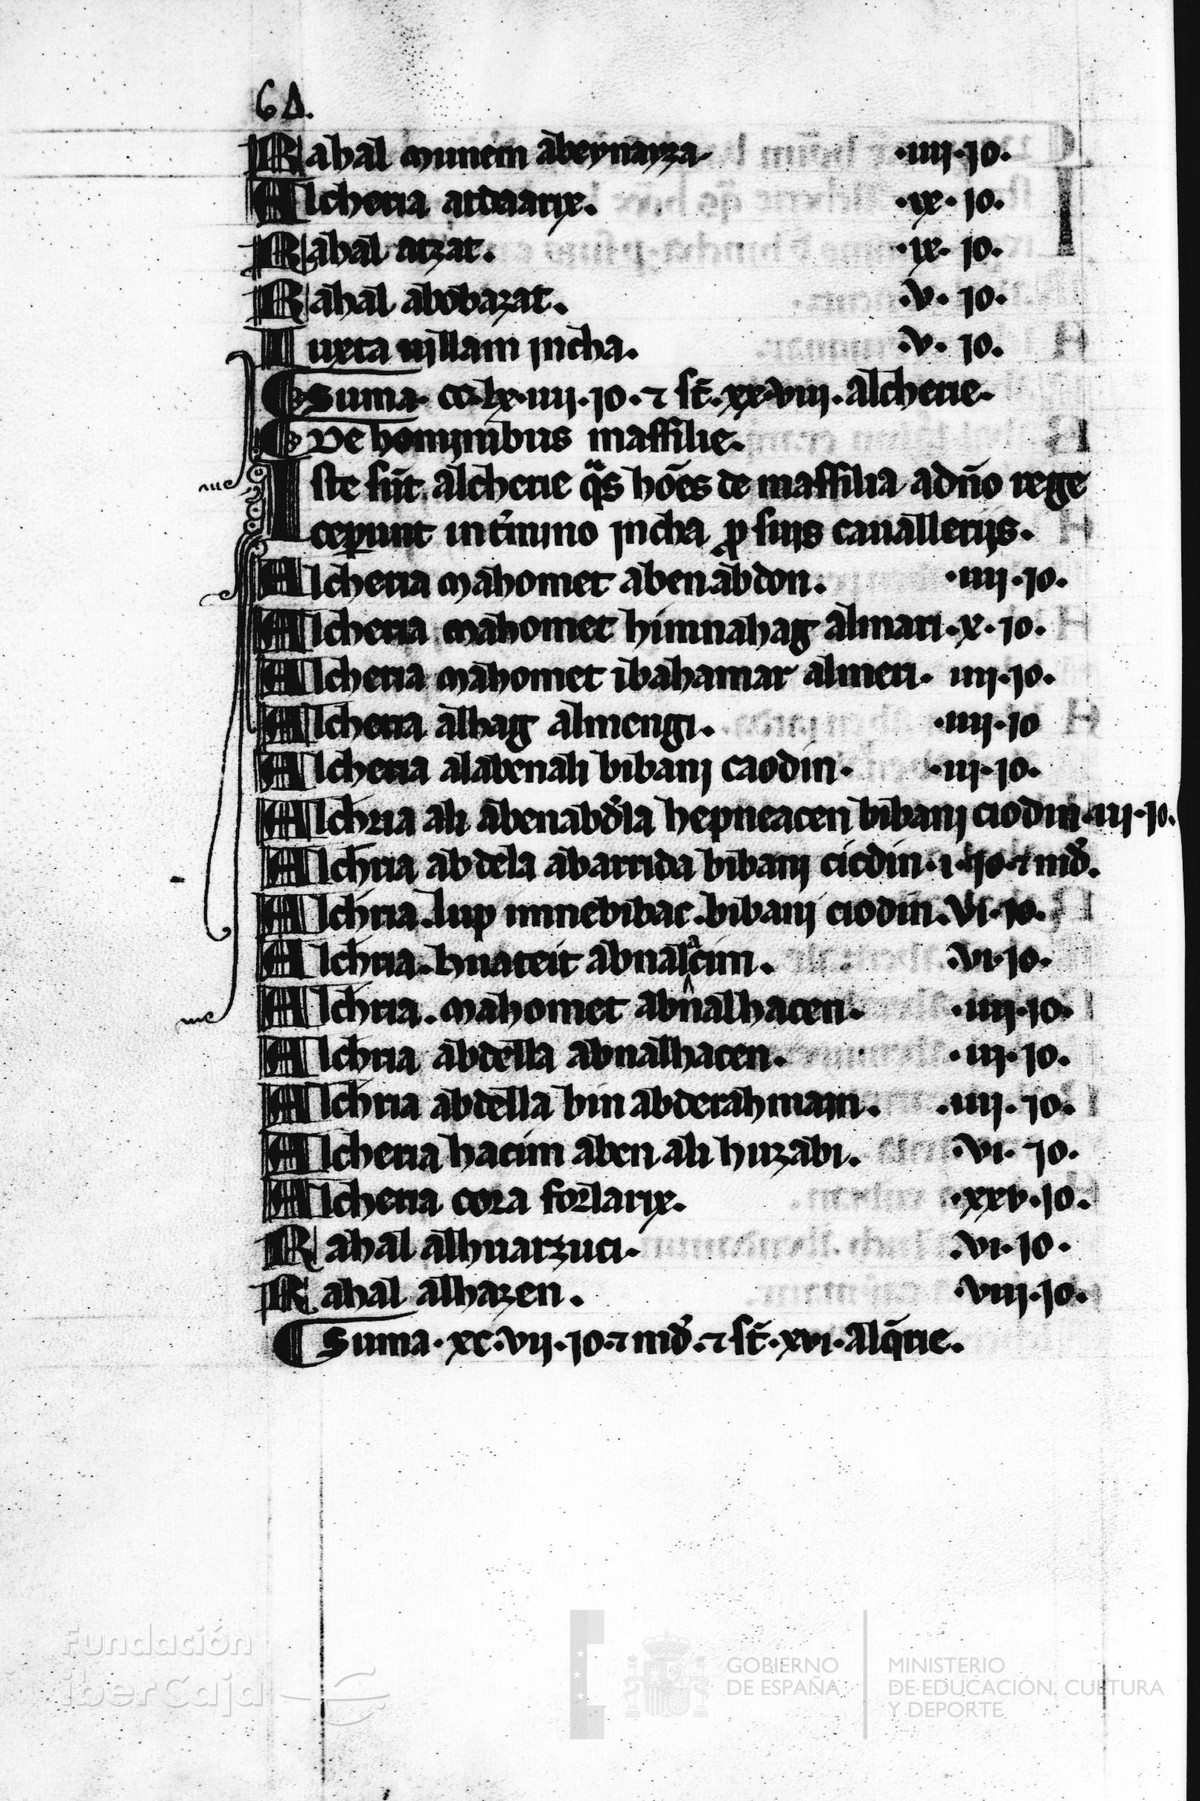 64.
Rahal munem abeynayza ·iiii·jo·
Alcheria atdaarix. ·ix·jo.
Rahal atzat. ·ix·jo.
Rahal abobazat. ·v·jo.
Iuxta uillam jncha. ·v·jo.
¶ Suma· cc·lx·iiii·jo·⁊ st̄·xx·viii·alcherie·
¶ De hominibus massilie.
Iste sūt alcherie q̄s hōes de massilia adn̄o rege
ceperunt int̄mino jncha ꝑ suis cauallerijs.
Alcheria mahomet aben abdon. ·iiii·jo.
Alcheria mahomet himnahag almari·x·jo.
Alcheria mahomet ibahamar almeri· iiii·jo.
Alcheria alhag almengi. ·iiii·jo
Alcheria alabenali bibanj caodin· ·iii·jo.
Alchria ali abenabd̄la hepneacen bibanj ciodin·iii·jo.
Alchria abdela abarrida bibanj cicdin·i·jo·⁊ md̄.
Alchria·lup minebibac·bibanj ciodin·vi·jo.
Alchria·huateit abnalacim. ·vi·jo.
Alchria·mahomet abn̄alhacen. ·iiii·jo.
Alchria abdella abnalhacen. ·iii·jo.
Alchria abdella bin abderahmain. ·iiii·jo.
Alcheria hacim aben ali huzabi. ·vi·jo.
Alcheria cora forlarix. ·xxv·jo.
Rahal alhuarzuci· ·vi·jo·
Rahal alhazen. ·viii·jo.
¶ Suma·xc·vii·jo·⁊ md̄·⁊ st̄·xvi·alq̄rie.
Fundación
iberCaja
GOBIERNO
DE ESPAÑA
MINISTERIO
DE EDUCACIÓN, CULTURA
Y DEPORTE